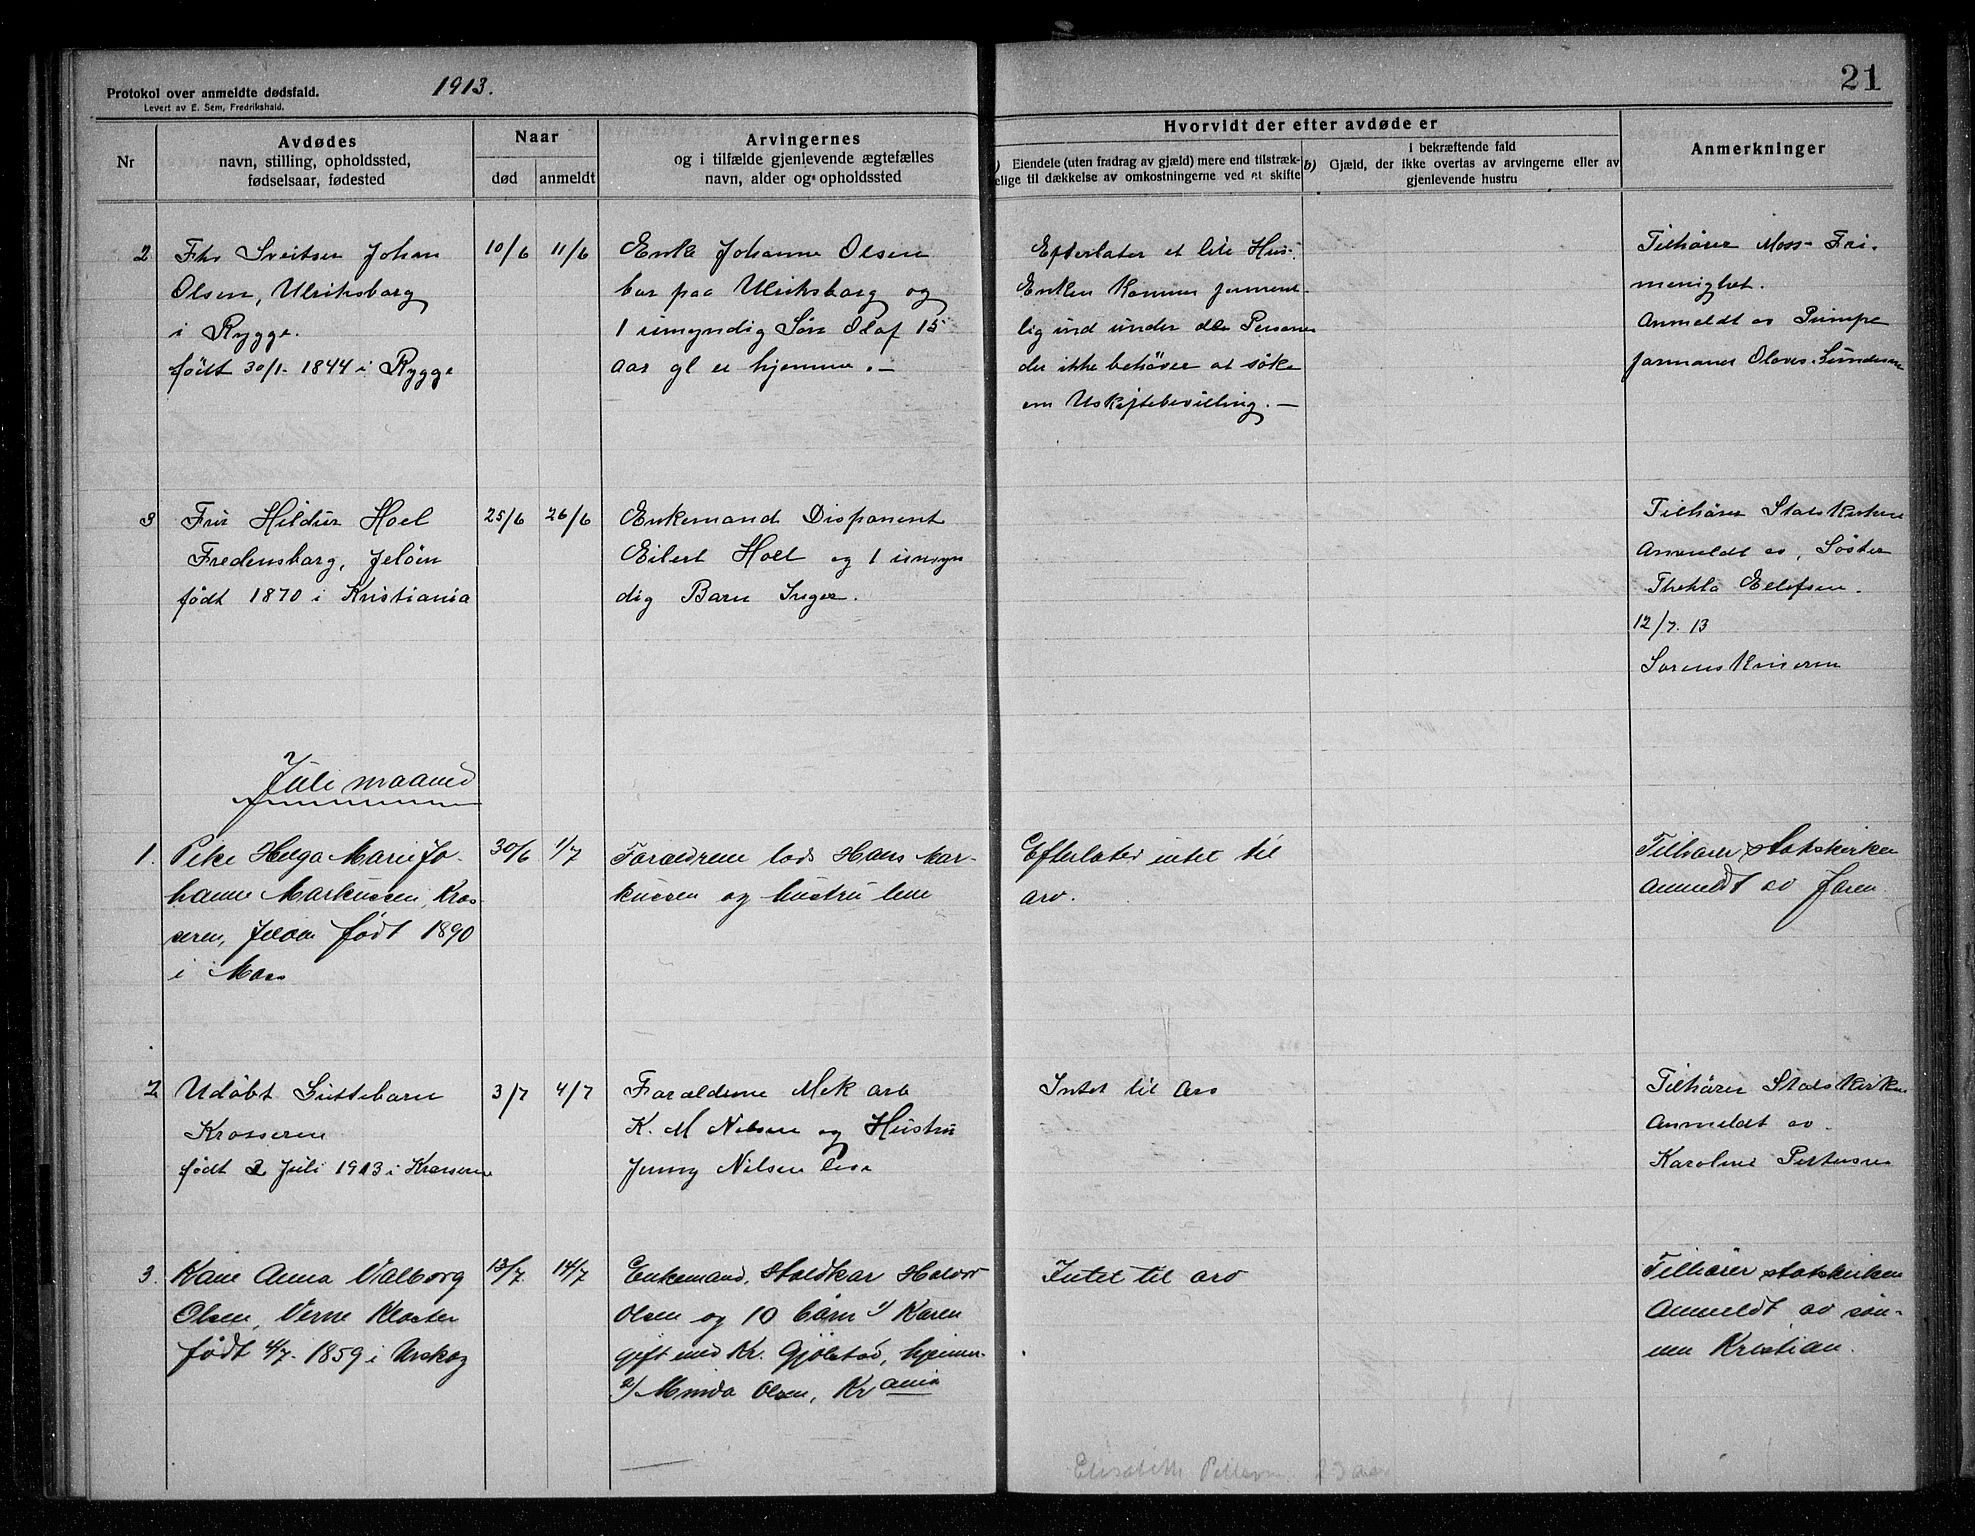 Protokol over anmeldte dødsfald.
Levert av E. Sem, Fredrikshald.
1913.
21
Nr
Avdødes
navn, stilling, opholdssted,
fødselsaar, fødested
Naar
død
anmeldt
Arvingernes
og i tilfælde gjenlevende ægtefælles
navn, alder og opholdssted
Hvorvidt der efter avdøde er
) Eiendele (uten fradrag av gjæld) mere end tilstræk-
elige til dækkelse av omkostningerne ved et skifte
i bekræftende fald
b) Gjæld, der ikke overtas av arvingerne eller av
gjenlevende hustru
Anmerkninger
2
Fhv Sveitser Johan
Olsen, Ulriksborg
i Rygge.
født 30/1- 1844 i Rygge
10/6
11/6
Enke Johanne Olsen
bor paa Ulriksborg og
1 umyndig Søn Olaf 15
aar gl er hjemme. -
Efterlater et lite Hus.
Enken kommer forment-
lig ind under de Personer
der ikke behøver at søke
om Uskiftebevilling. -
Tilhører Moss Fri-
menighet.
Anmeldt av Pumpe
formand Olaves Gundersen
3
Fru Hildur Hoel
Fredensborg, Jeløen
født 1870 i Kristiania
25/6
26/6
Enkemand Disponent
Eilert Hoel og 1 umyn
dig Barn Inger.
Tilhører Statskirken
Anmeldt av Søster
Thekla Ellefsen.
12/7. 13
Sorenskriveren
Juli maaned
1.
Pike Helga Marie Jo-
hanne Markussen, Kros-
seren, Jeløen født 1890
i Moss
30/6
1/7
Forældrene Lods Hans Mar-
kussen og hustru leve
Efterlater intet til
arv.
Tilhører statskirken
anmeldt av Faren
2
Udøbt Guttebarn
Krosseren
født 2 Juli 1913 i Krosseren
3/7
4/7
Forældrene Mek arb
K. M Nilsen og Hustru
Jenny Nilsen leve
Intet til Arv
Tilhører Statskirken
Anmeldt av
Karoline Pettersen
3.
Kone Anna Valborg
Olsen, Verne Kloster
født 4/7- 1859 i Urskog
13/7
14/7
Enkemand, Staldkar Halvor
Olsen og 10 børn 1/ Karen
gift med Kr. Gjølstad, hjemme
2/ Minda Olsen, Kr ania
Intet til arv
Tilhører statskirken
Anmeldt av søn-
nen Kristian.
Elisabeth Pettersen 23 aar